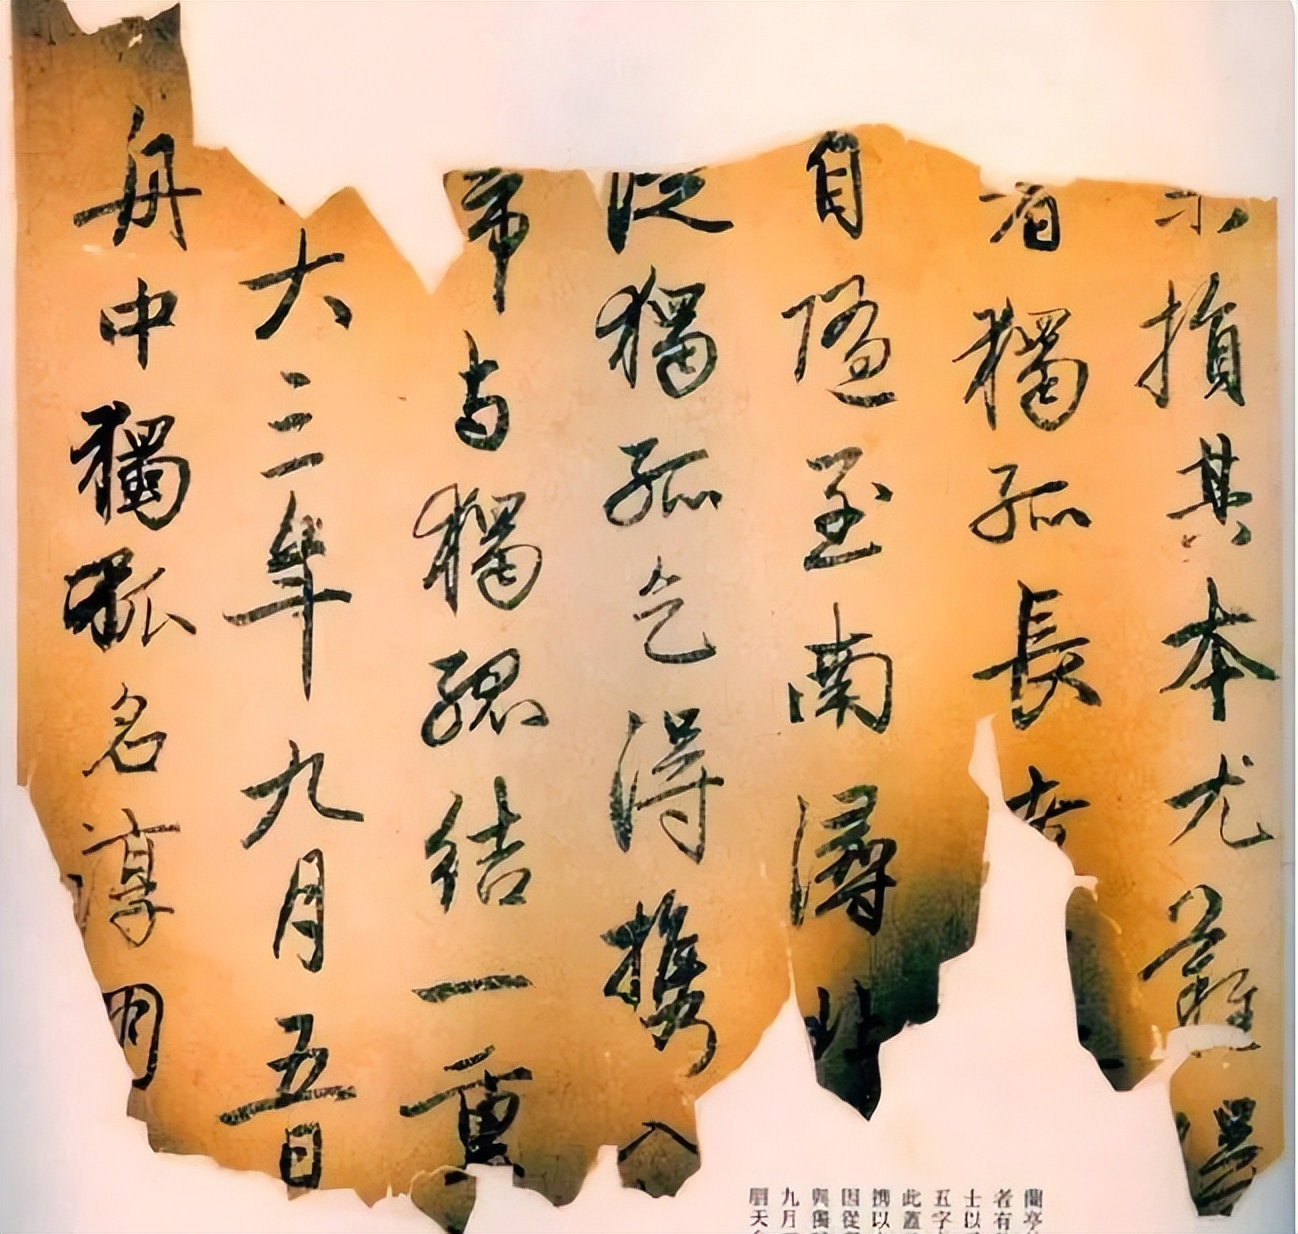 損其本尤難得
有獨孤長
自隨至南潯北
從獨孤乞得攜入
与獨孤結一重
大三年九月五日
舟中獨孤名淳朋
蘭亭
者有
士以
五字
此蓋
携以
因從
與獨
九月
朋天